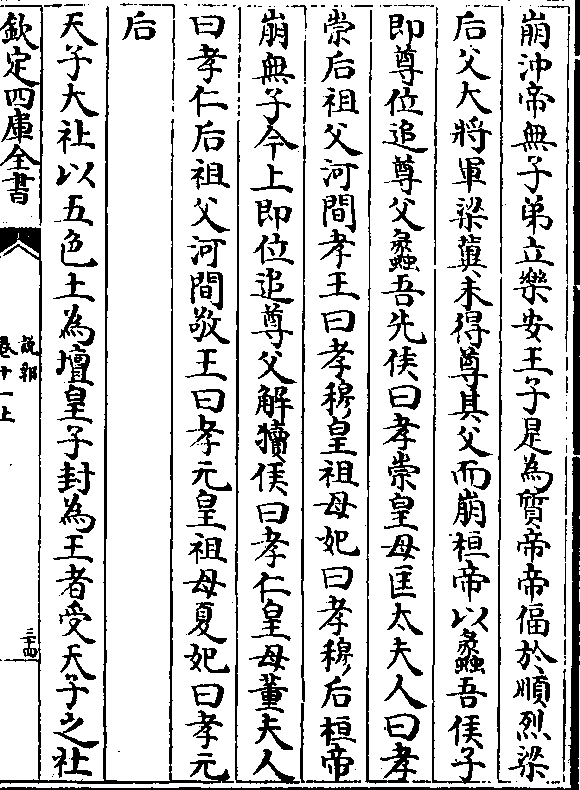 崩沖帝無子弟立樂安王子是為質帝帝偪於順烈梁
后父大將軍梁冀未得尊其父而崩桓帝以蠡吾侯子
即尊位追尊父蠡吾先侯曰孝崇皇母匡太夫人曰孝
崇后祖父河間孝王曰孝穆皇祖母妃曰孝穆后桓帝
崩無子今上即位追尊父解犢侯曰孝仁皇母董夫人
曰孝仁后祖父河間敬王曰孝元皇祖母夏妃曰孝元
后
天子大社以五色土為壇皇子封為王者受天子之社
欽定四庫全書
說郛
卷十一上
三十四